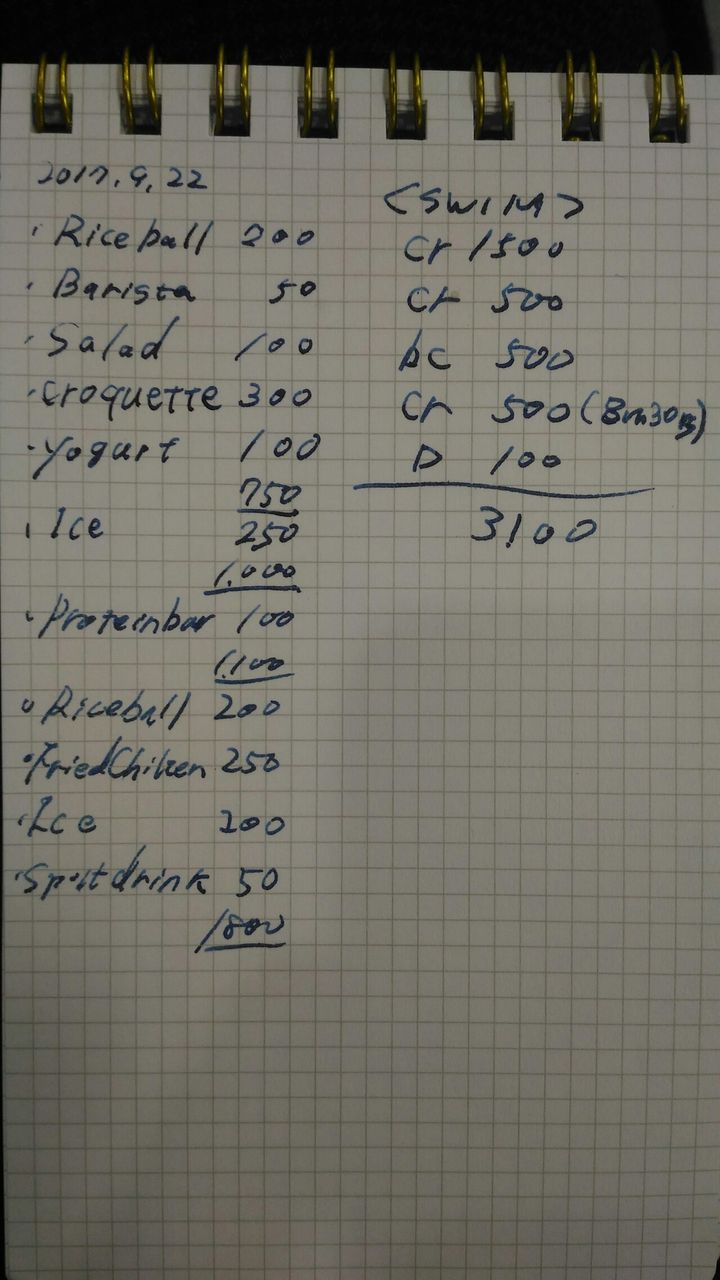 2017.9.22
・Riceball 200
・Barista 50
・Salad 100
・croquette 300
・yogurt 100
750
・Ice 250
1,000
・Proteinbar 100
1,100
・Riceball 200
・FriedChiken 250
・Ice 200
・Sportdrink 50
1800
<SWIM>
Cr 1500
Cr 500
bc 500
Cr 500 (8m30s)
D 100
3100